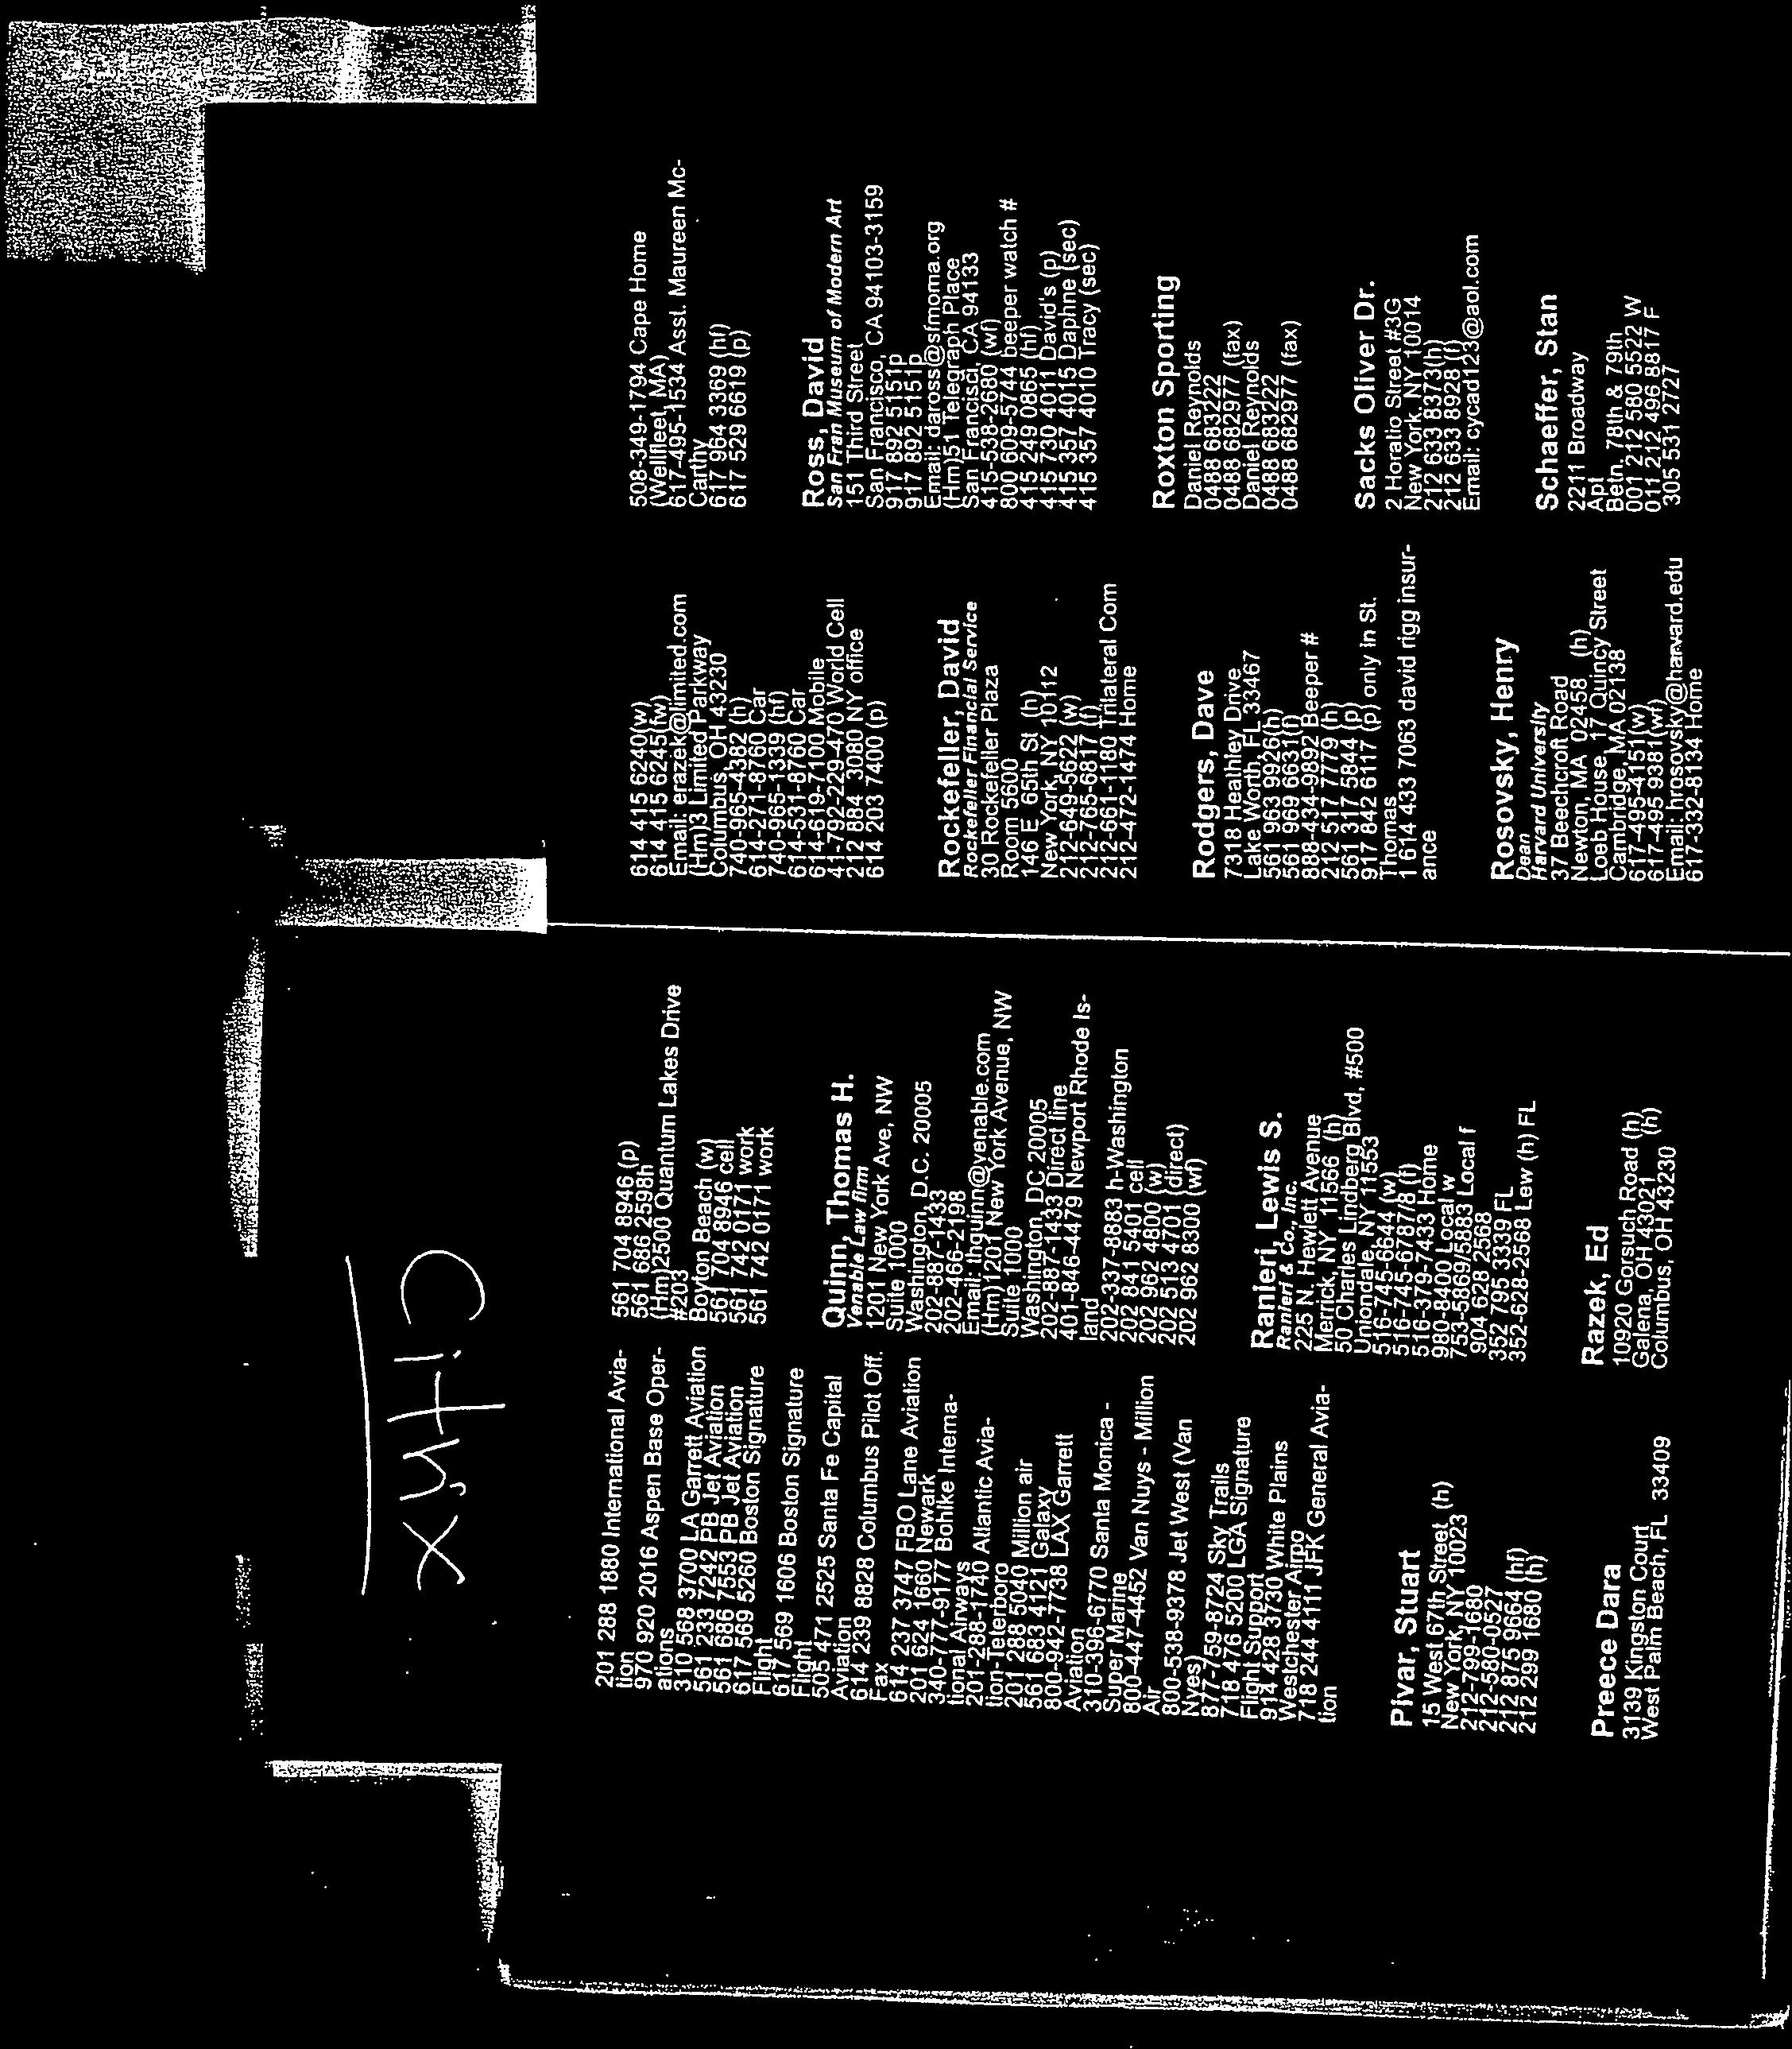 CiтhiX
201 288 1880 International Avia-
tion
970 920 2016 Aspen Base Oper-
ations
310 568 3700 LA Garrett Aviation
561 233 7242 PB Jet Aviation
561 686 7553 PB Jet Aviation
617 569 5260 Boston Signature
Flight
617 569 1606 Boston Signature
Flight
505 471 2525 Santa Fe Capital
Aviation
614 239 8828 Columbus Pilot Off.
Fax
614 237 3747 FBO Lane Aviation
201 624 1660 Newark
340-777-9177 Bohlke Interna-
tional Airways
201-288-1740 Atlantic Avia-
tion-Teterboro
201 288 5040 Million air
561 683 4121 Galaxy
800-942-7738 LAX Garrett
Aviation
310-396-6770 Santa Monica -
Super Marine
800-447-4452 Van Nuys - Million
Air
800-538-9378 Jet West (Van
Nyes)
877-759-8724 Sky Trails
718 476 5200 LGA Signature
Flight Support
914 428 3730 White Plains
Westchester Airpo
718 244 4111 JFK General Avia-
tion
Pivar, Stuart
15 West 67th Street (h)
New York, NY 10023
212-799-1680
212-580-0527
212 875 9664 (hf)
212 299 1680 (h)
Preece Dara
3139 Kingston Court
West Palm Beach, FL 33409
561 704 8946 (p)
561 686 2598h
(Hm)2500 Quantum Lakes Drive
#203
Boyton Beach (w)
561 704 8946 cell
561 742 0171 work
561 742 0171 work
Quinn, Thomas H.
Venable Law firm
1201 New York Ave, NW
Suite 1000
Washington, D.C. 20005
202-887-1433
202-466-2198
Email: thquinn@venable.com
(Hm)1201 New York Avenue, NW
Suite 1000
Washington, DC 20005
202-887-1433 Direct line
401-846-4479 Newport Rhode Is-
land
202-337-8883 h-Washington
202 841 5401 cell
202 962 4800 (w)
202 513 4701 (direct)
202 962 8300 (wf)
Ranieri, Lewis S.
Ranieri & Co., Inc.
225 N. Hewlett Avenue
Merrick, NY 11566 (h)
50 Charles Lindberg Blvd, #500
Uniondale, NY 11553
516-745-6644 (w)
516-745-6787/8 (f)
516-379-7433 Home
980-8400 Local w
753-5869/5883 Local f
904 628 2568
352 795 3339 FL
352-628-2568 Lew (h) FL
Razek, Ed
10920 Gorsuch Road (h)
Galena, OH 43021
Columbus, OH 43230 (h)
614 415 6240(w)
614 415 6245(fw)
Email: erazek@limited.com
(Hm)3 Limited Parkway
Columbus, OH 43230
740-965-4382 (h)
614-271-8760 Car
740-965-1339 (hf)
614-531-8760 Car
614-619-7100 Mobile
41-792-229-470 World Cell
212 884 3080 NY office
614 203 7400 (p)
Rockefeller, David
Rockefeller Financial Service
30 Rockefeller Plaza
Room 5600
146 E 65th St (h)
New York, NY 10112
212-649-5622 (w)
212-765-6817 (f)
212-661-1180 Trilateral Com
212-472-1474 Home
Rodgers, Dave
7318 Heathley Drive
Lake Worth, FL 33467
561 963 9926(h)
561 969 6631(f)
888-434-9892 Beeper #
212 517 7779 (h)
561 317 5844 (p)
917 842 6117 (p) only in St.
Thomas
1 614 433 7063 david rigg insur-
ance
Rosovsky, Henry
Dean
Harvard University
37 Beechcroft Road
Newton, MA 02458 (h)
Loeb House, 17 Quincy Street
Cambridge, MA 02138
617-495-4151(w)
617-495 9381(wf)
Email: hrosovsky@harvard.edu
617-332-8134 Home
508-349-1794 Cape Home
(Wellfleet, MA)
617-495-1534 Asst. Maureen Mc-
Carthy
617 964 3369 (hf)
617 529 6619 (p)
Ross, David
San Fran Museum of Modern Art
151 Third Street
San Francisco, CA 94103-3159
917 892 5151p
917 892 5151p
Email: daross@sfmoma.org
(Hm)51 Telegraph Place
San Francisci, CA 94133
415-538-2680 (wf)
800 609-5744 beeper watch #
415 249 0865 (hf)
415 730 4011 David's (p)
415 357 4015 Daphne (sec)
415 357 4010 Tracy (sec)
Roxton Sporting
Daniel Reynolds
0488 683222
0488 682977 (fax)
Daniel Reynolds
0488 683222
0488 682977 (fax)
Sacks Oliver Dr.
2 Horatio Street #3G
New York, NY 10014
212 633 8373(h)
212 633 8928 (f)
Email: cycad123@aol.com
Schaeffer, Stan
2211 Broadway
Apt
Betn. 78th & 79th
001 212 580 5522 W
011 212 496 8817 F
305 531 2727